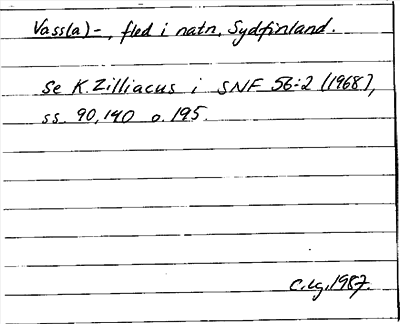 Vass(a)-, fled i natn, Sydfinland.
Se K. Zilliacus i SNF 56:2 (1968),
ss 90, 140 o. 195.
1987.